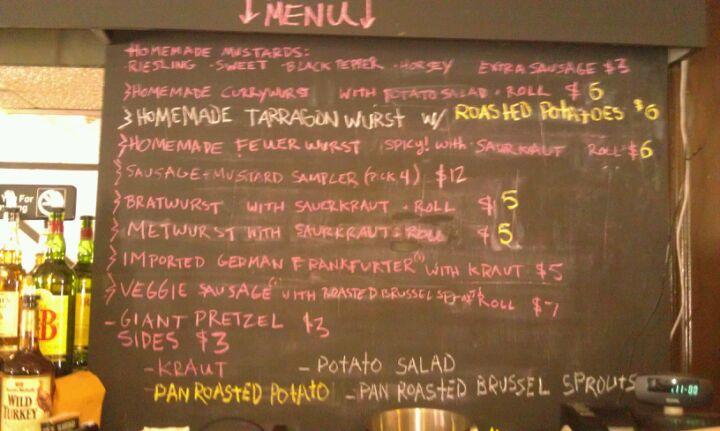 ↓MENU↓
HOMEMADE MUSTARDS:
RIESLING · SWEET · BLACK PEPPER · HORSEY EXTRA SAUSAGE $3
HOMEMADE CURRYWURST WITH POTATO SALAD + ROLL $6
HOMEMADE TARRAGON WURST W/ ROASTED POTATOES $6
HOMEMADE FEUERWURST SPICY! WITH SAURKRAUT ROLL $6
SAUSAGE + MUSTARD SAMPLER (PICK 4) $12
BRATWURST WITH SAUERKRAUT + ROLL $5
METWURST WITH SAURKRAUT + ROLL $5
IMPORTED GERMAN FRANKFURTER(1) WITH KRAUT $5
VEGGIE SAUSAGE WITH ROASTED BRUSSEL ROLL $7
- GIANT PRETZEL $3
SIDES $3
- KRAUT - POTATO SALAD
PAN ROASTED POTATO - PAN ROASTED BRUSSEL SPROUTS
JB
WILD
TURKEY
11:00